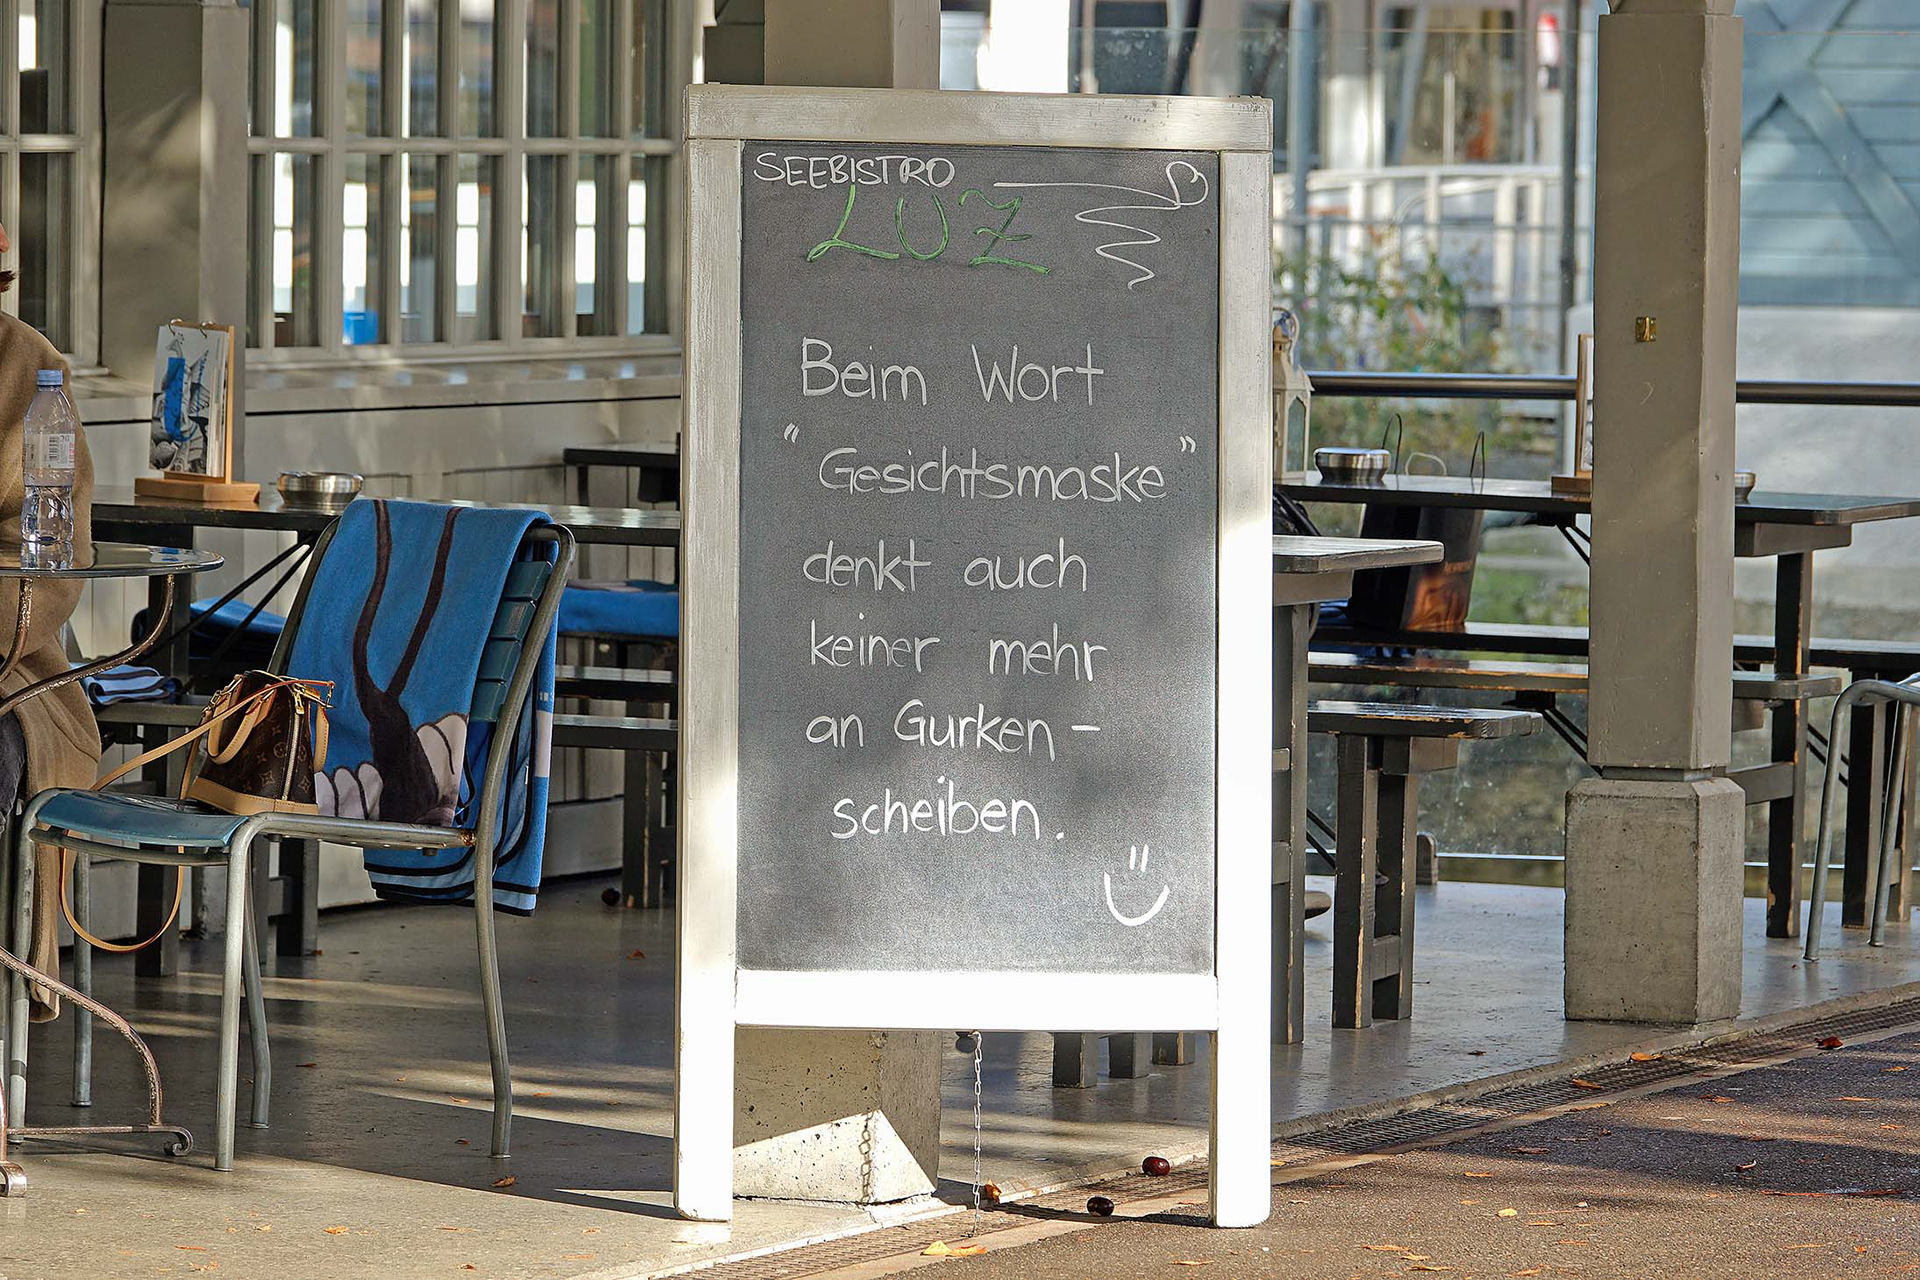 SEEBISTRO
LUZ
Beim Wort
"Gesichtsmaske"
denkt auch
keiner mehr
an Gurken-
scheiben.